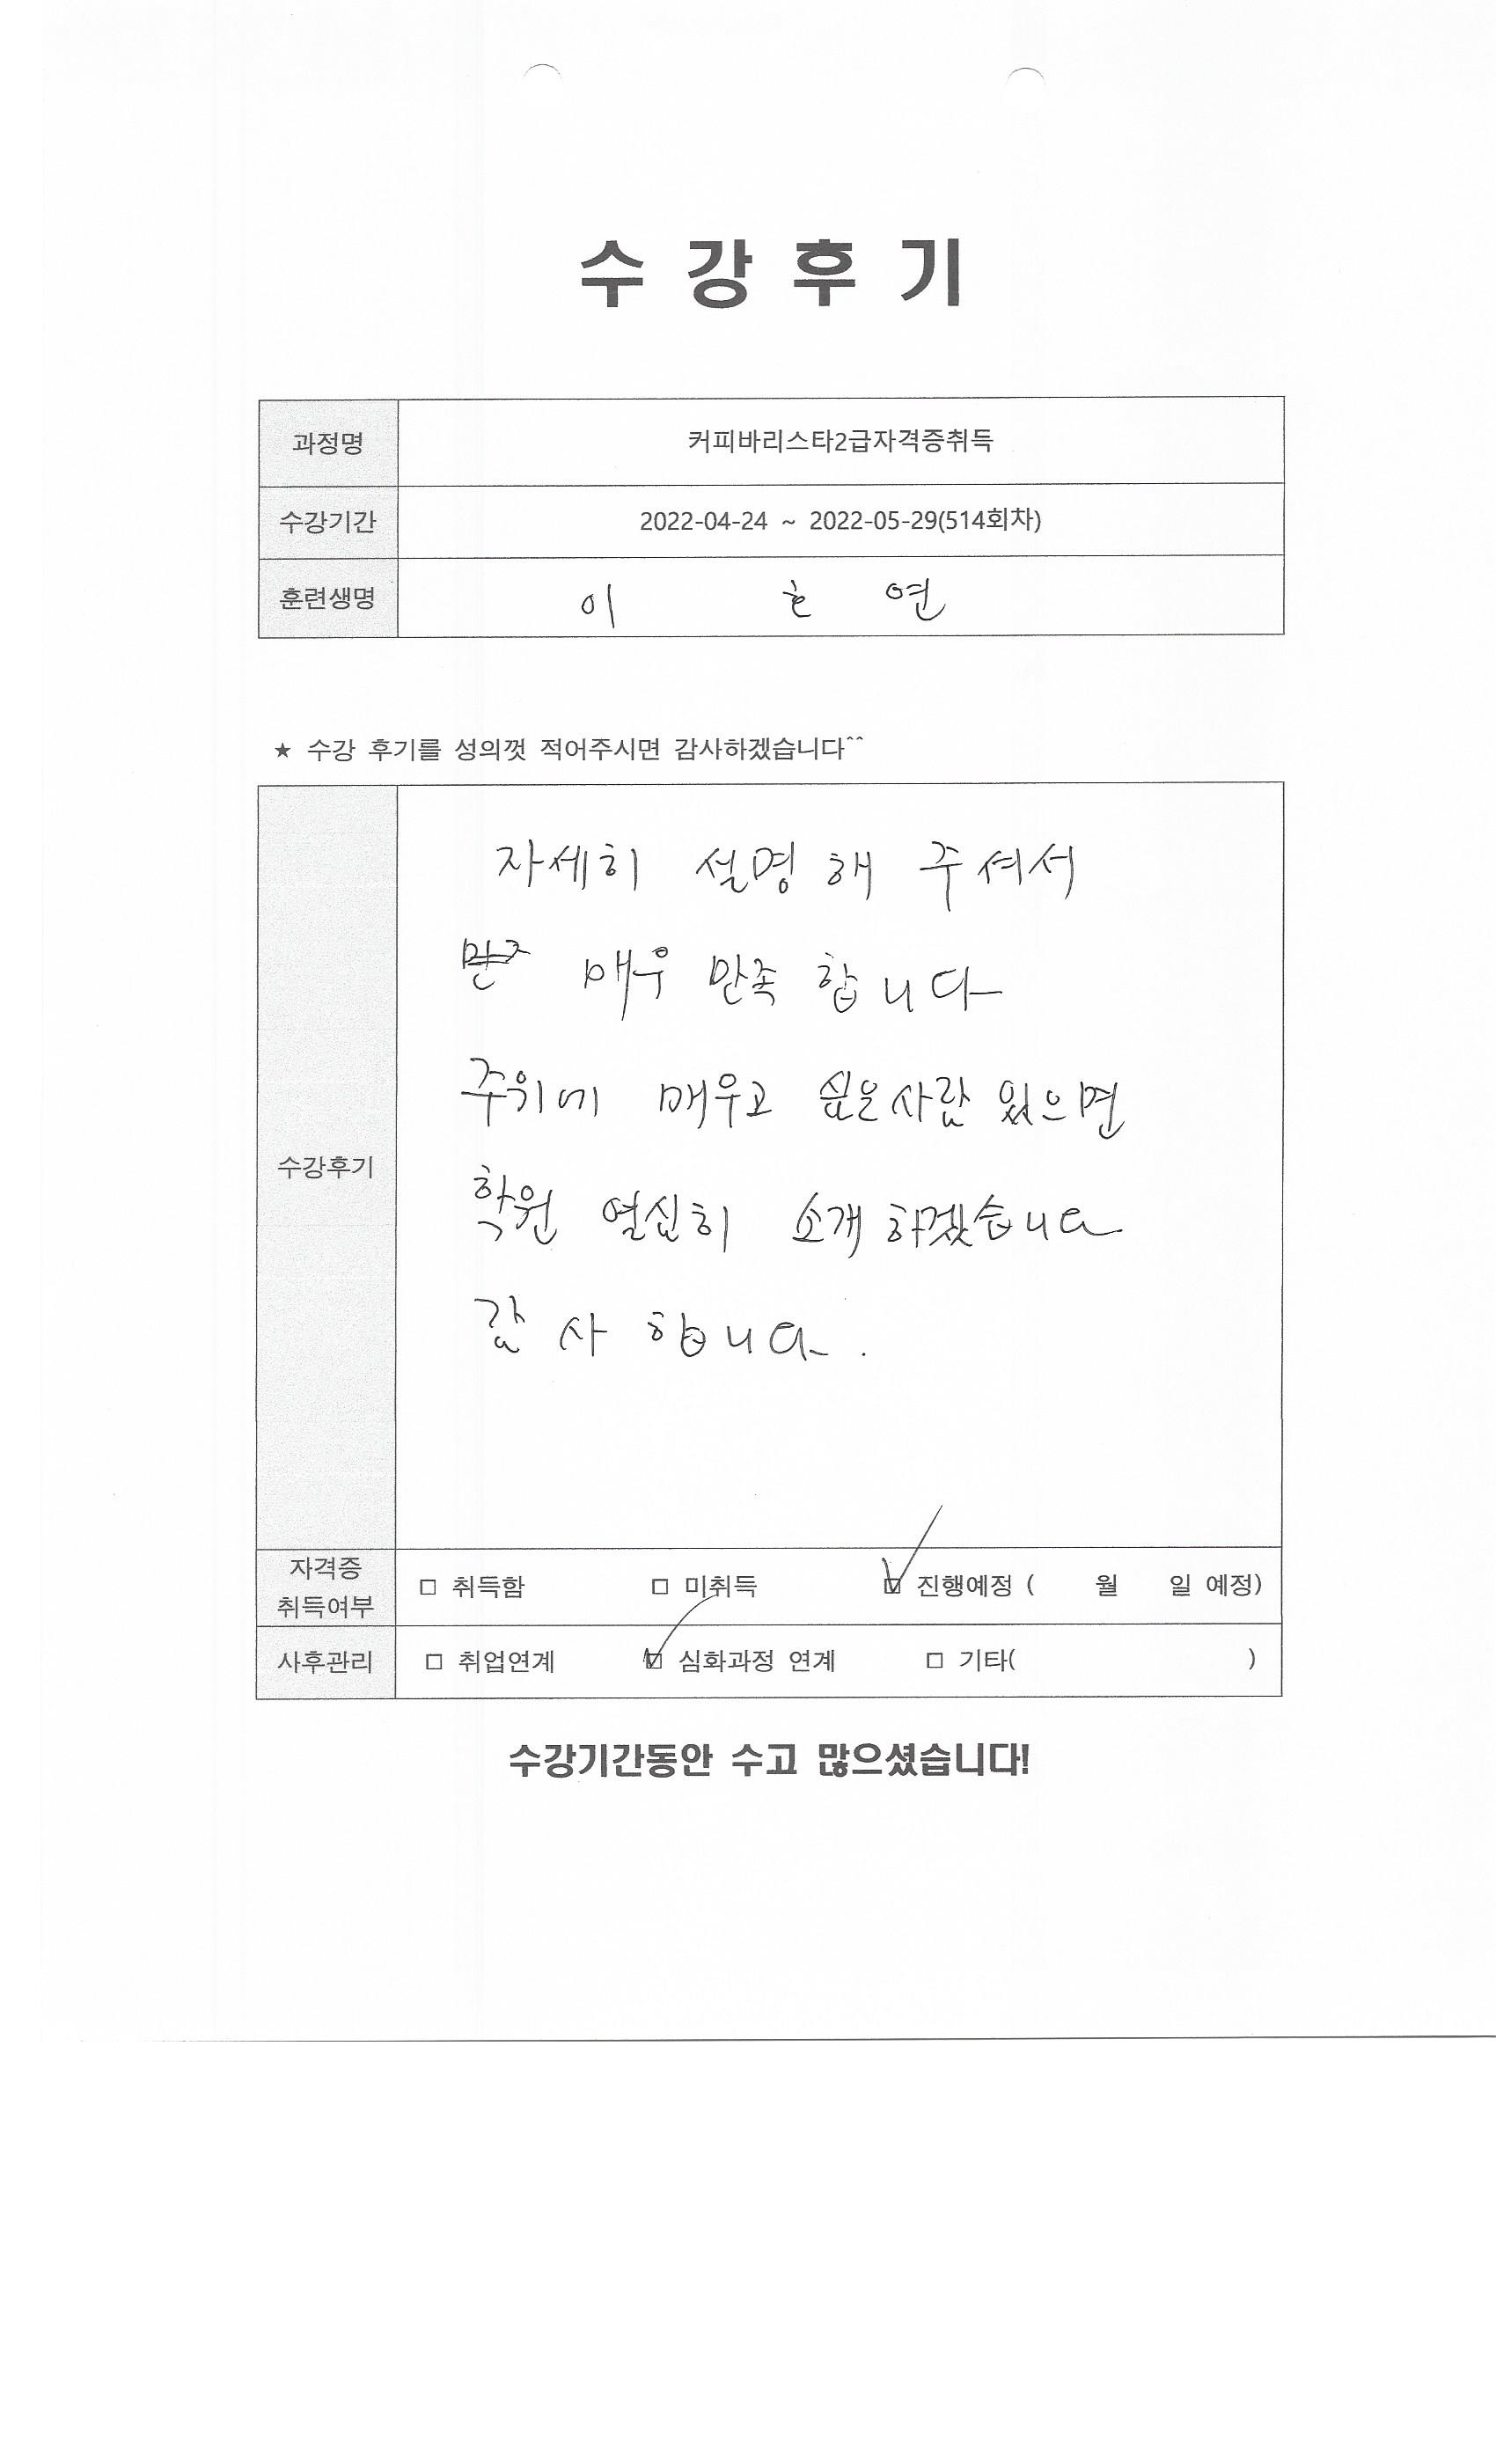 수 강 후 기
과정명 커피바리스타2급자격증취득
수강기간 2022-04-24 ~ 2022-05-29(514회차)
훈련생명 이 연
★ 수강 후기를 성의껏 적어주시면 감사하겠습니다^^
자세히 설명 해 주셔서
매우 만족 합니다
주위에 매우고 싶은사람 있으면
수강후기
학원 열심히 소개 하겠습니다
감 사 합니다.
자격증
취득여부
□ 취득함 □ 미취득 ☑ 진행예정 ( 월 일 예정)
사후관리 □ 취업연계 ☑ 심화과정 연계 □ 기타( )
수강기간동안 수고 많으셨습니다!